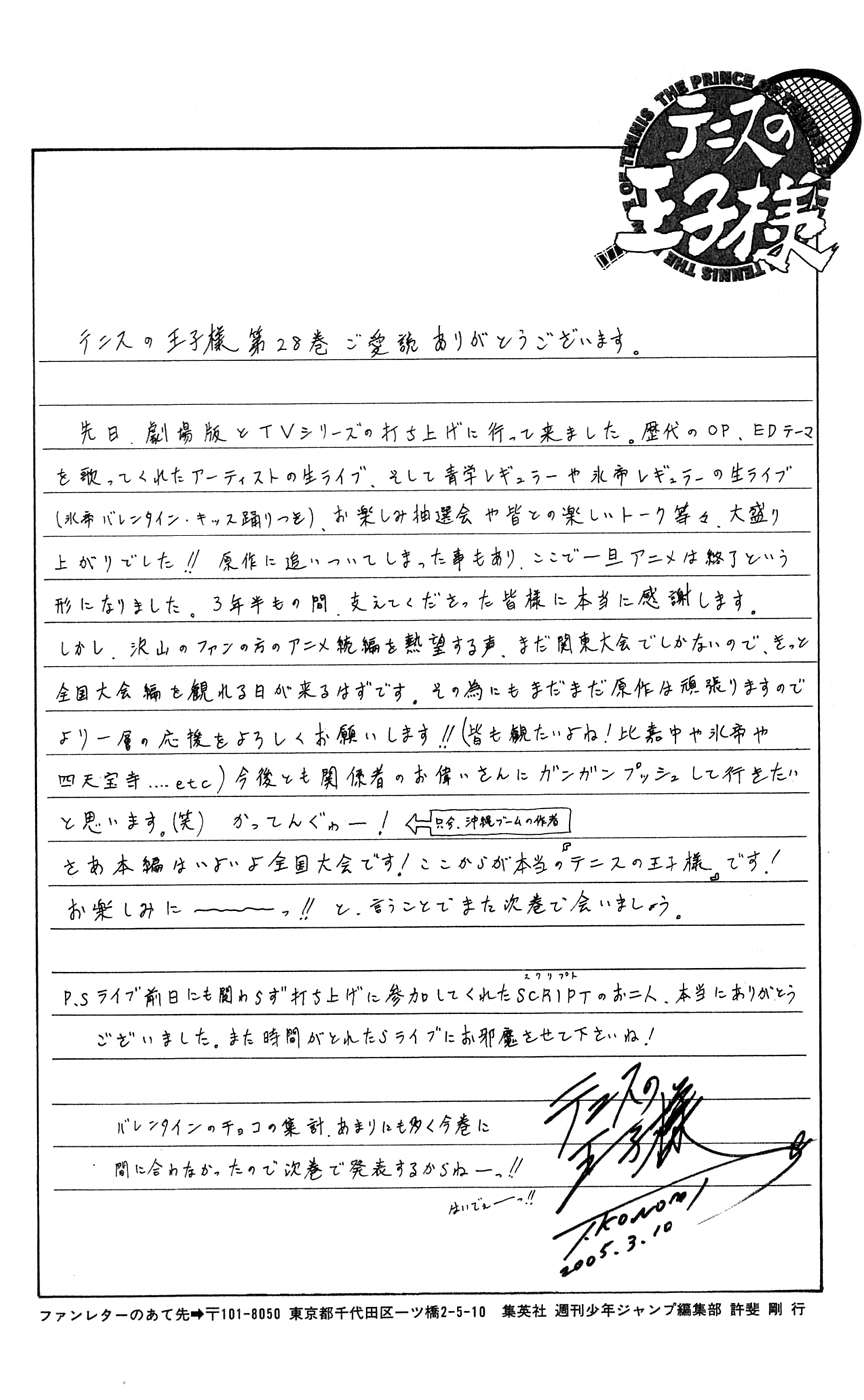 THE PRINCE OF TENNIS THE PRINCE OF TENNIS THE
テニスの
王子様
テニスの王子様 第28巻 ご愛読 ありがとうございます。
先日、劇場版とTVシリーズの打ち上げに行って来ました。歴代のOP、EDテーマ
を歌ってくれたアーティストの生ライブ、そして青学レギュラーや氷帝レギュラーの生ライブ
(氷帝バレンタイン・キッス踊りつき)、お楽しみ抽選会や皆との楽しいトーク等々、大盛り
上がりでした!! 原作に追いついてしまった事もあり、ここで一旦アニメは終了という
形になりました。3年半もの間、支えてくださった皆様に本当に感謝します。
しかし、沢山のファンの方のアニメ続編を熱望する声、まだ関東大会でしかないので、きっと
全国大会編を観れる日が来るはずです。その為にもまだまだ原作は頑張りますので
より一層の応援をよろしくお願いします!!(皆も観たいよね!比嘉中や氷帝や
四天宝寺....etc)今後とも関係者のお偉いさんにガンガンプッシュして行きたい
と思います。(笑) かってんぐゎー! ⇦只今、沖縄ブームの作者
さあ本編はいよいよ全国大会です!ここからが本当の『テニスの王子様』です!
お楽しみに〜〜〜っ!! と、言うことでまた次巻で会いましょう。
P.Sライブ前日にも関わらず打ち上げに参加してくれたSCRIPTのお二人、本当にありがとう
スクリプト
ございました。また時間がとれたらライブにお邪魔させて下さいね!
バレンタインのチョコの集計、あまりにも多く今巻に
間に合わなかったので次巻で発表するからねーっ!!
はいでぇーっ!!
テニスの
王子様
T.KONOMI
2005.3.10
ファンレターのあて先➡〒101-8050 東京都千代田区一ツ橋2-5-10 集英社 週刊少年ジャンプ編集部 許斐 剛 行